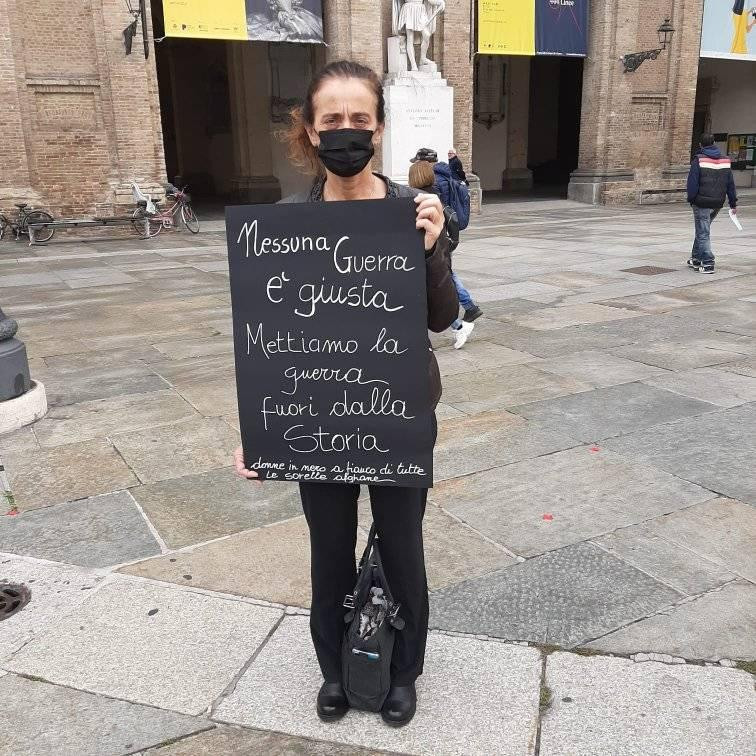 Nessuna
Guerra
e' giusta
Mettiamo la
guerra
fuori dalla
Storia
donne in nero a fianco di tutte
le sorelle afghane